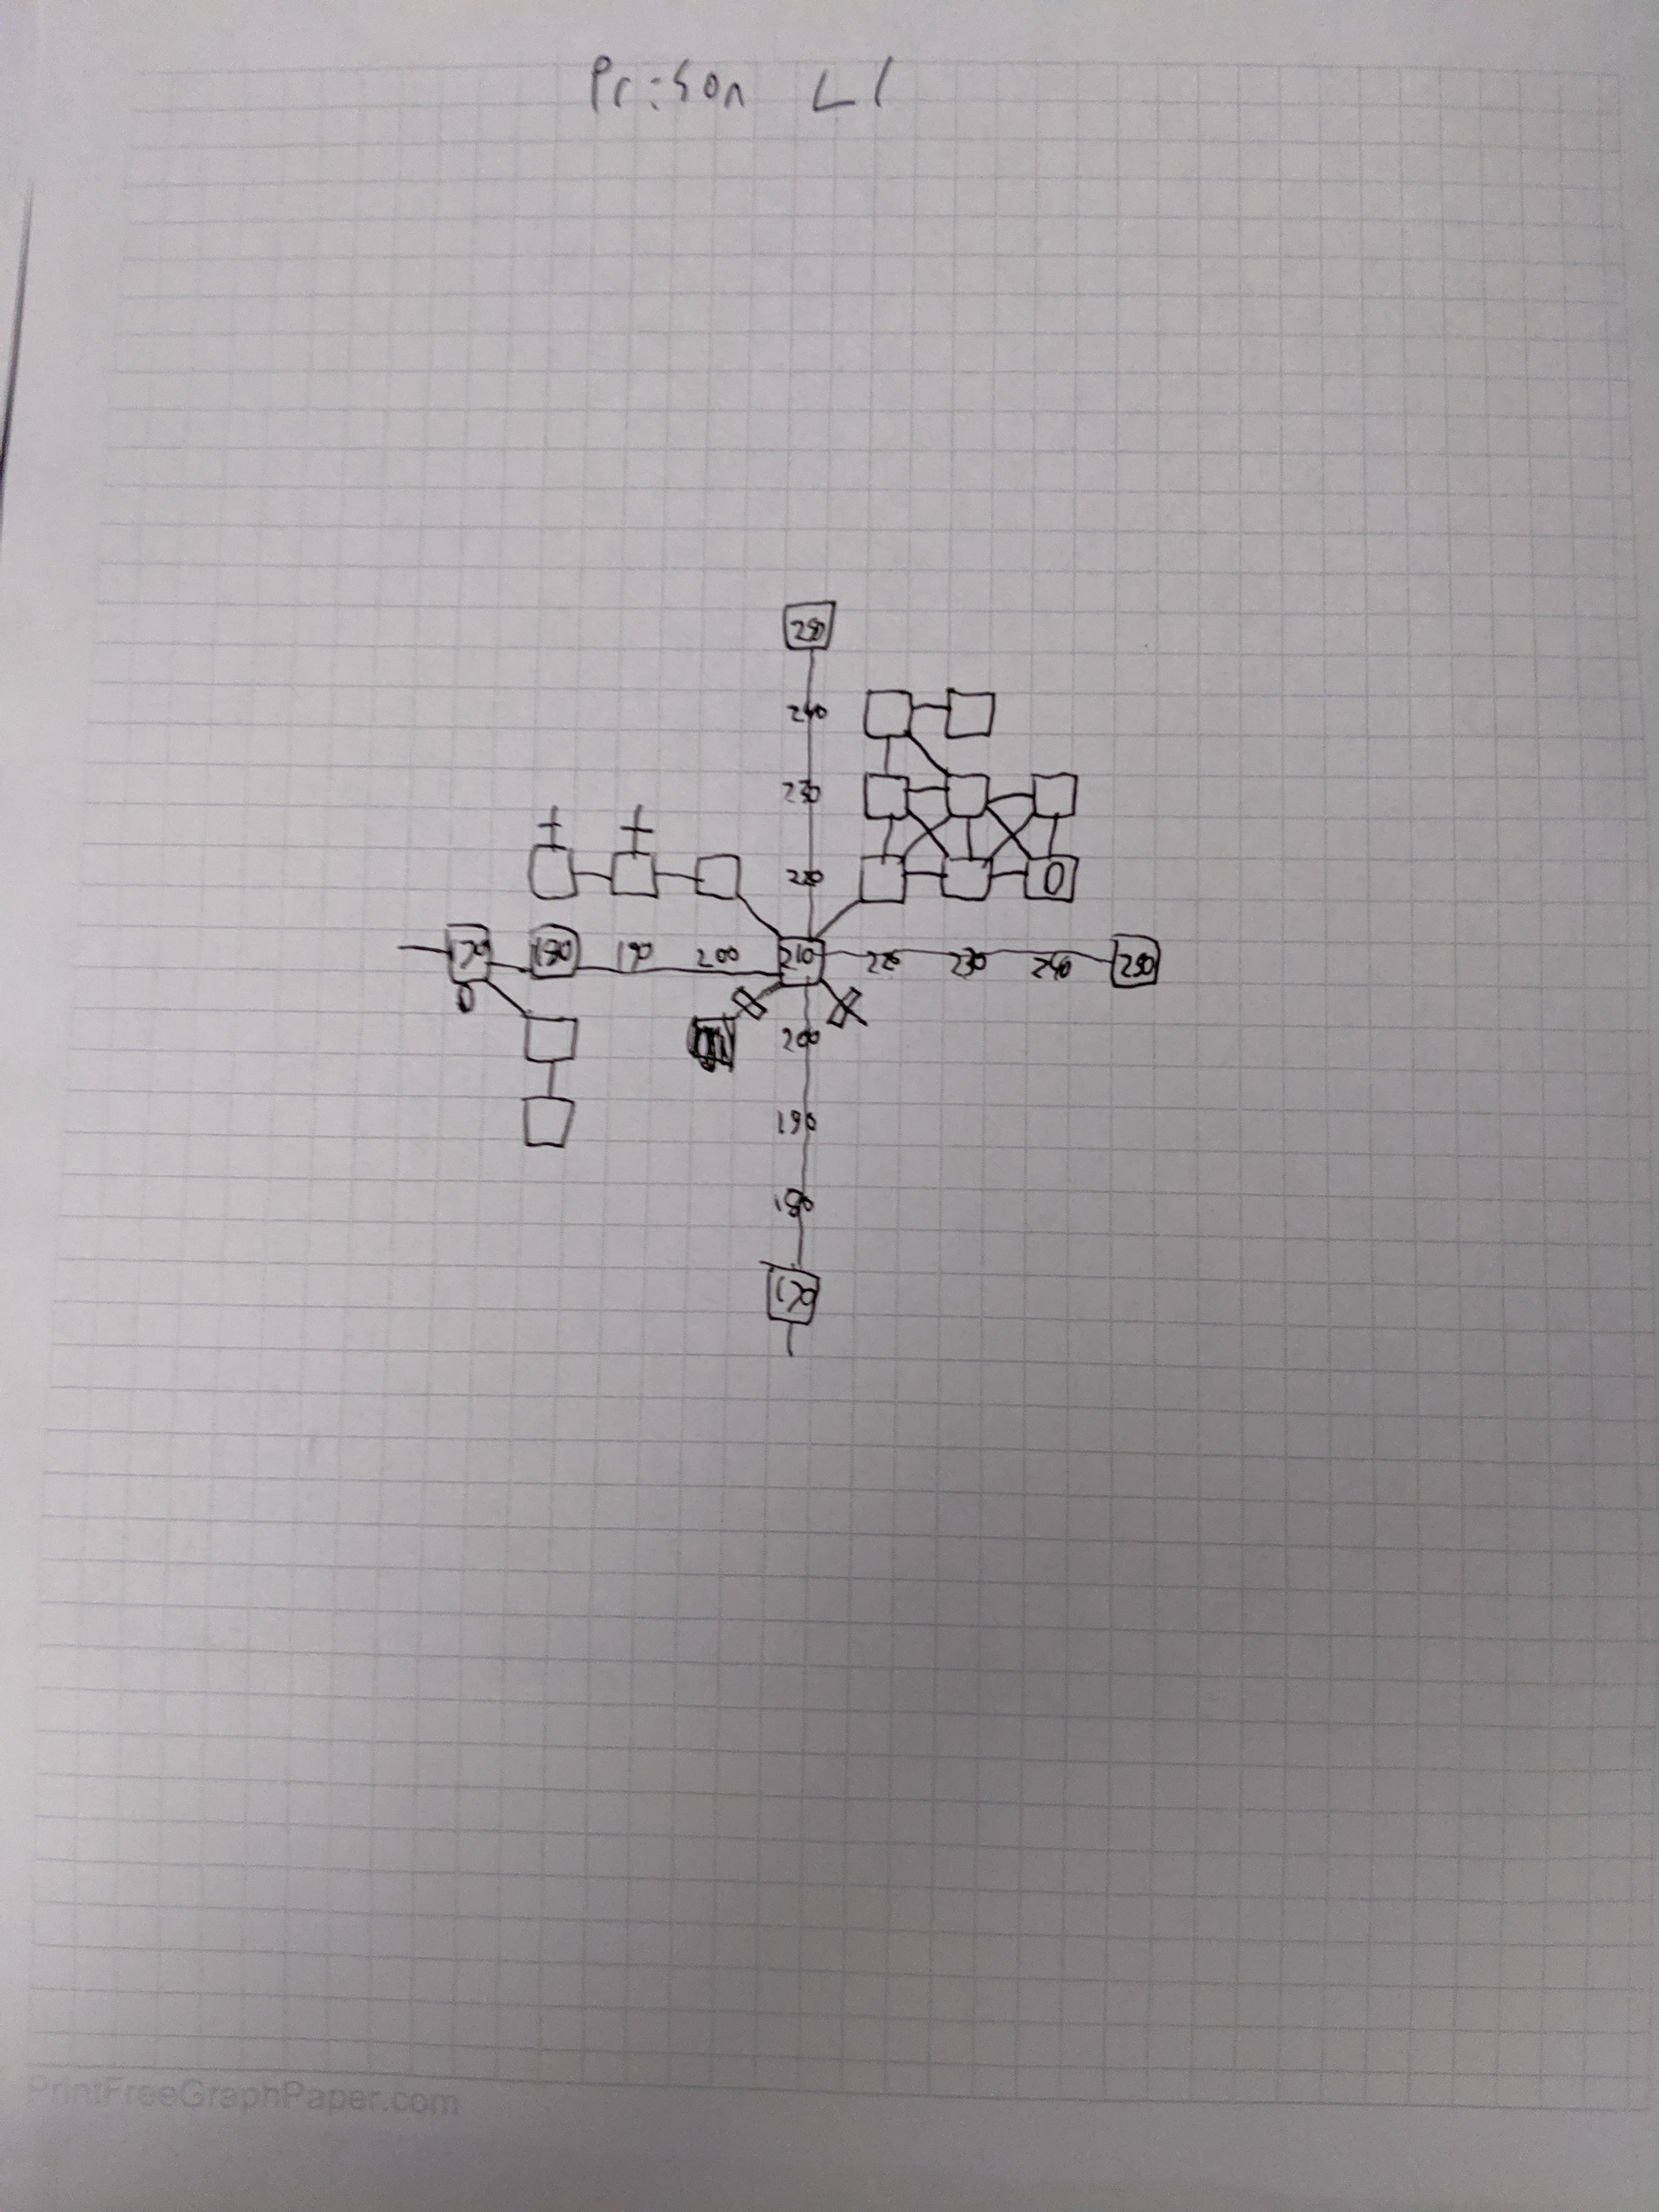 Prison L1
250
240
230
220
170 180 190 200 210 220 230 240 250
0
0
200
190
180
170
PrintFreeGraphPaper.com